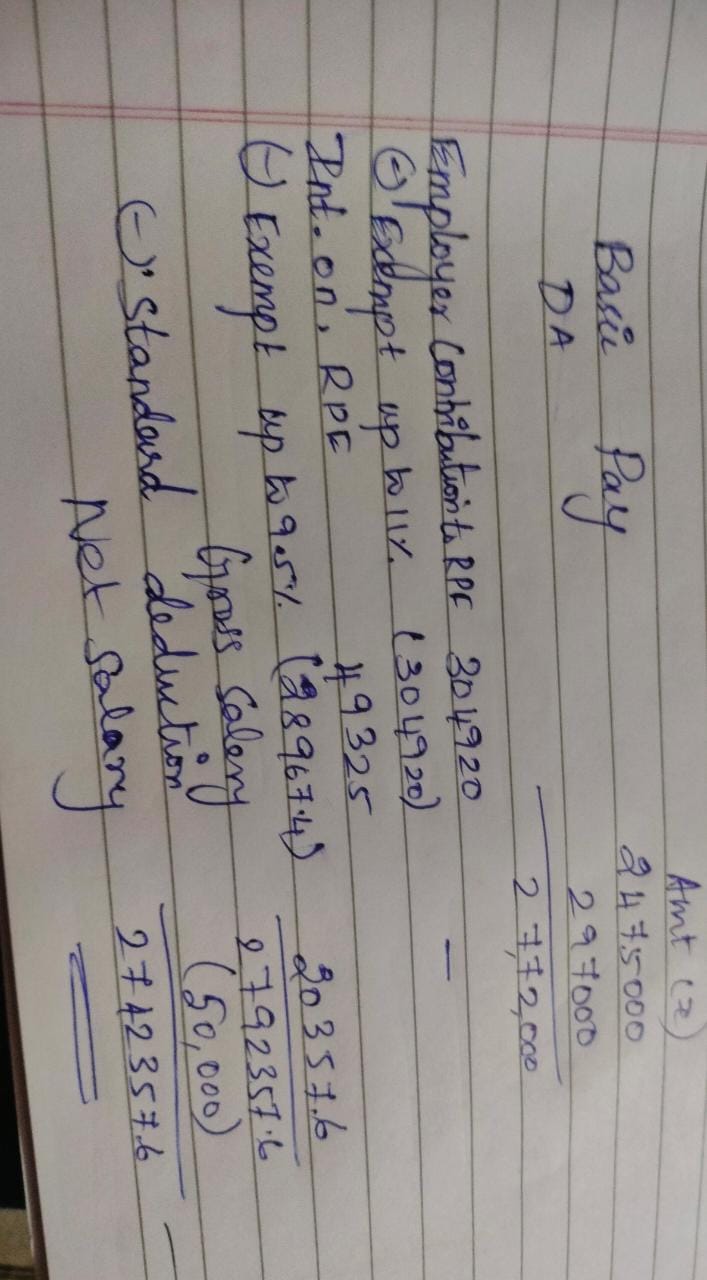 Amt (₹)
Basic Pay 2475000
DA 297000
27,72,000
Employer Contribution to RPF 304920
(-) Exempt up to 11% (304920) —
Int. on, RPF 49325
(-) Exempt up to 9.5% (28967.4) 20357.6
Gross Salary 2792357.6
(-) Standard deduction (50,000)
Net Salary 2742357.6